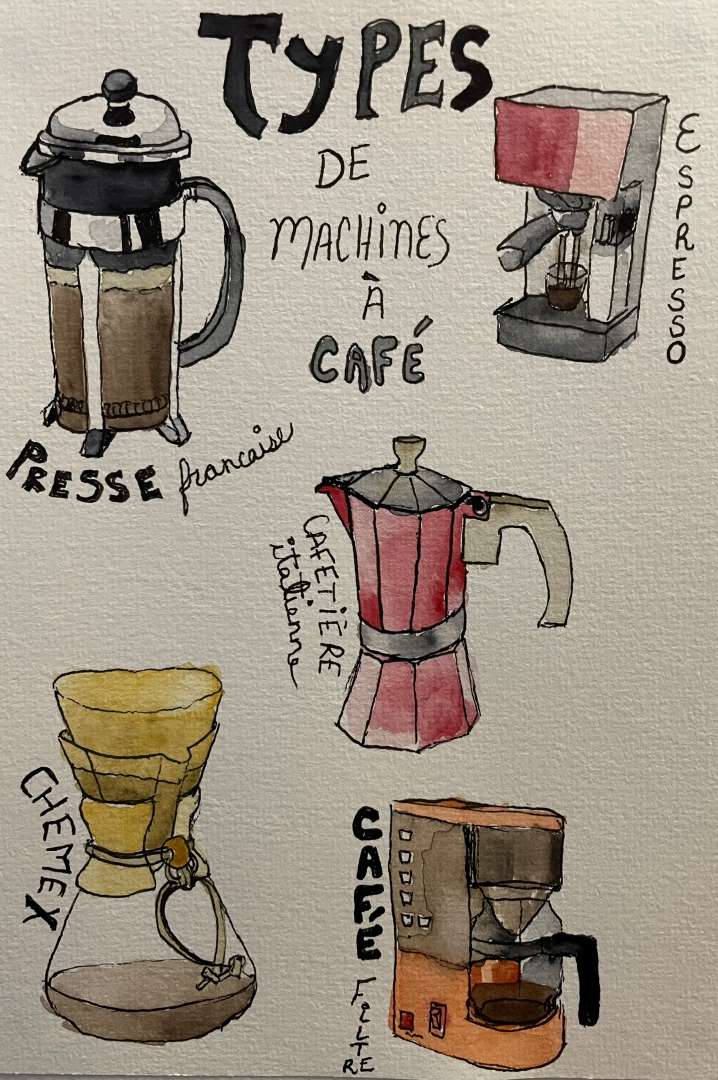 TYPES
DE
MACHINES
À
CAFÉ
ESPRESSO
PRESSE francaise
CAFETIÈRE
italienne
CHEMEX
CAFÉ
FiLTRE